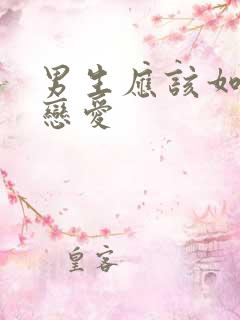 男生應該如
戀愛
皇客